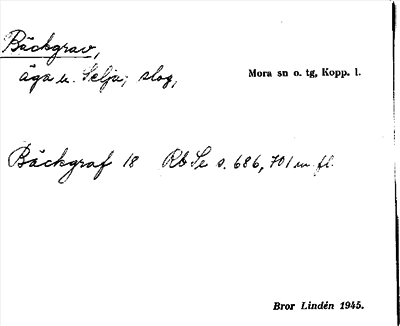 Bäckgrav,
äga u. Selja; slog,
Mora sn o. tg, Kopp. l.
Bäckgraf 18 Rb Se s. 686, 701 m. fl.
Bror Lindén 1945.